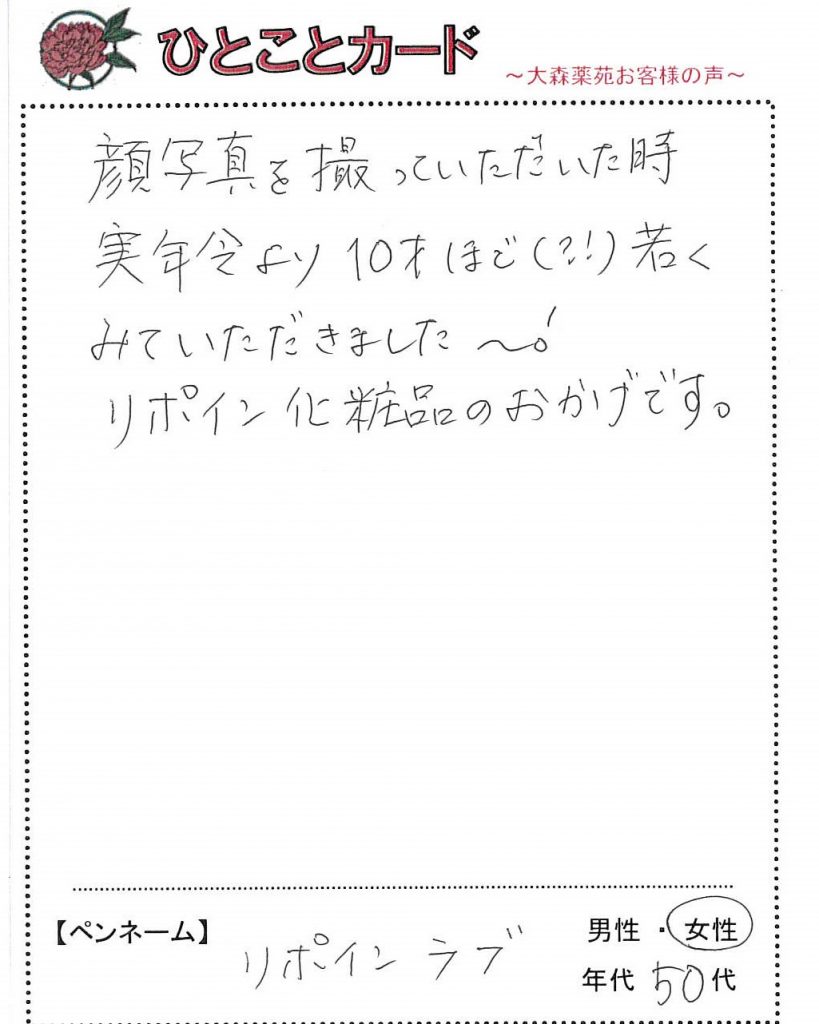 ひとことカード
～大森薬苑お客様の声～
顔写真を撮っていただいた時
実年令より10才ほど(?!)若く
みていただきました～!
リポイン化粧品のおかげです。
【ペンネーム】
リポイン ラブ
男性・女性
年代 50代